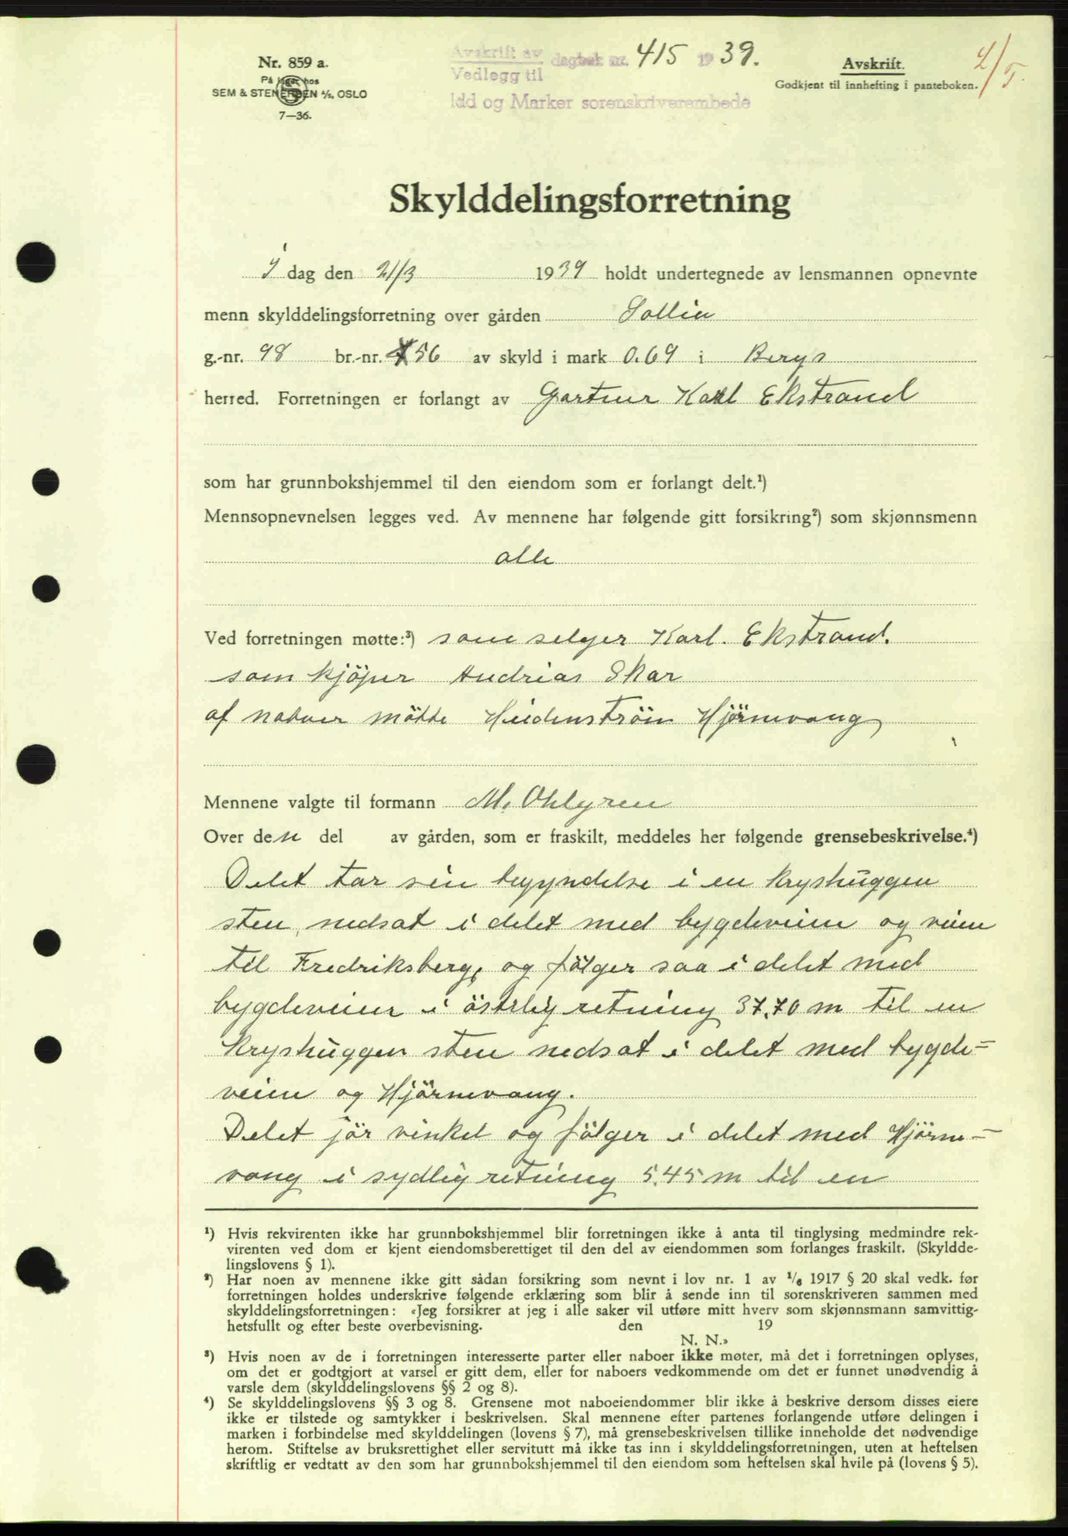 Nr. 859 a.
På lager hos
SEM & STENERSEN A/S, OSLO
7—36.
Avskrift av dagbok nr. 415 1939.
Vedlegg til
Idd og Marker sorenskriverembede
Avskrift.
Godkjent til innhefting i panteboken.
4/5
Skylddelingsforretning
I dag den 21/3 1939 holdt undertegnede av lensmannen opnevnte
menn skylddelingsforretning over gården Sollia
g.-nr. 98 br.-nr. 56 av skyld i mark 0.69 i Bergs
herred. Forretningen er forlangt av Gartner Karl Ekstrand
som har grunnbokshjemmel til den eiendom som er forlangt delt.¹)
Mennsopnevnelsen legges ved. Av mennene har følgende gitt forsikring²) som skjønnsmenn
alle
Ved forretningen møtte:³) som selger Karl. Ekstrand.
som kjöper Andrias Skar
af naboer mötte Heidenström Hjörnevang
Mennene valgte til formann M. Ohlgren
Over den del av gården, som er fraskilt, meddeles her følgende grensebeskrivelse.⁴)
Delet tar sin begyndelse i en kryshuggen
sten, nedsat i delet med bygdeveien og veien
til Fredriksberg, og fölger saa i delet med
bygdeveien i östelig retning 37,70 m til en
kryshuggen sten nedsat i delet med bygde=
veien og Hjörnevang.
Delet jör vinkel og fölger i delet med Hjörne=
vang i sydlig retning 5,45 m til en
¹) Hvis rekvirenten ikke har grunnbokshjemmel blir forretningen ikke å anta til tinglysing medmindre rek-
virenten ved dom er kjent eiendomsberettiget til den del av eiendommen som forlanges fraskilt. (Skyldde-
lingslovens § 1).
²) Har noen av mennene ikke gitt sådan forsikring som nevnt i lov nr. 1 av 1/6 1917 § 20 skal vedk. før
forretningen holdes underskrive følgende erklæring som blir å sende inn til sorenskriveren sammen med
skylddelingsforretningen: «Jeg forsikrer at jeg i alle saker vil utføre mitt hverv som skjønnsmann samvittig-
hetsfullt og efter beste overbevisning. den 19
N. N.»
³) Hvis noen av de i forretningen interesserte parter eller naboer ikke møter, må det i forretningen oplyses,
om det er godtgjort at varsel er gitt dem, eller for naboers vedkommende om det er funnet unødvendig å
varsle dem (skylddelingslovens §§ 2 og 8).
⁴) Se skylddelingslovens §§ 3 og 8. Grensene mot naboeiendommer blir ikke å beskrive dersom disses eiere
ikke er tilstede og samtykker i beskrivelsen. Skal mennene efter partenes forlangende utføre delingen i
marken i forbindelse med skylddelingen (lovens § 7), må grensebeskrivelsen tillike inneholde det nødvendige
herom. Stiftelse av bruksrettighet eller servitutt må ikke tas inn i skylddelingsforretningen, uten at heftelsen
skriftlig er vedtatt av den som har grunnbokshjemmel til den eiendom som heftelsen skal hvile på (lovens § 5).